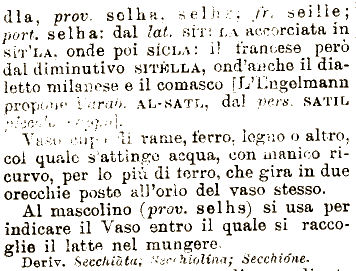 dla, prov. selha. selhe; fr. seille;
port. selha: dal lat. SÍT'LA accorciata in
SIT'LA. onde poi SICLA: il francese però
dal diminutivo SITÈLLA, ond'anche il dia-
letto milanese e il comasco [L'Engelmann
propone l'arab. AL-SATL, dal pers. SATIL
Vaso cupo di rame, ferro, legno o altro,
col quale s'attinge acqua, con manico ri-
curvo, per lo più di ferro, che gira in due
orecchie poste all'orlo del vaso stesso.
Al mascolino (prov. selhs) si usa per
indicare il Vaso entro il quale si racco-
glie il latte nel mungere.
Deriv. Secchiàta; Secchiolina; Secchióne.